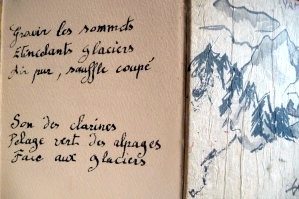 Gravir les sommets
Etincelants glaciers
Air pur, souffle coupé
Son des clarines
Pelage vert des alpages
Face aux glaciers